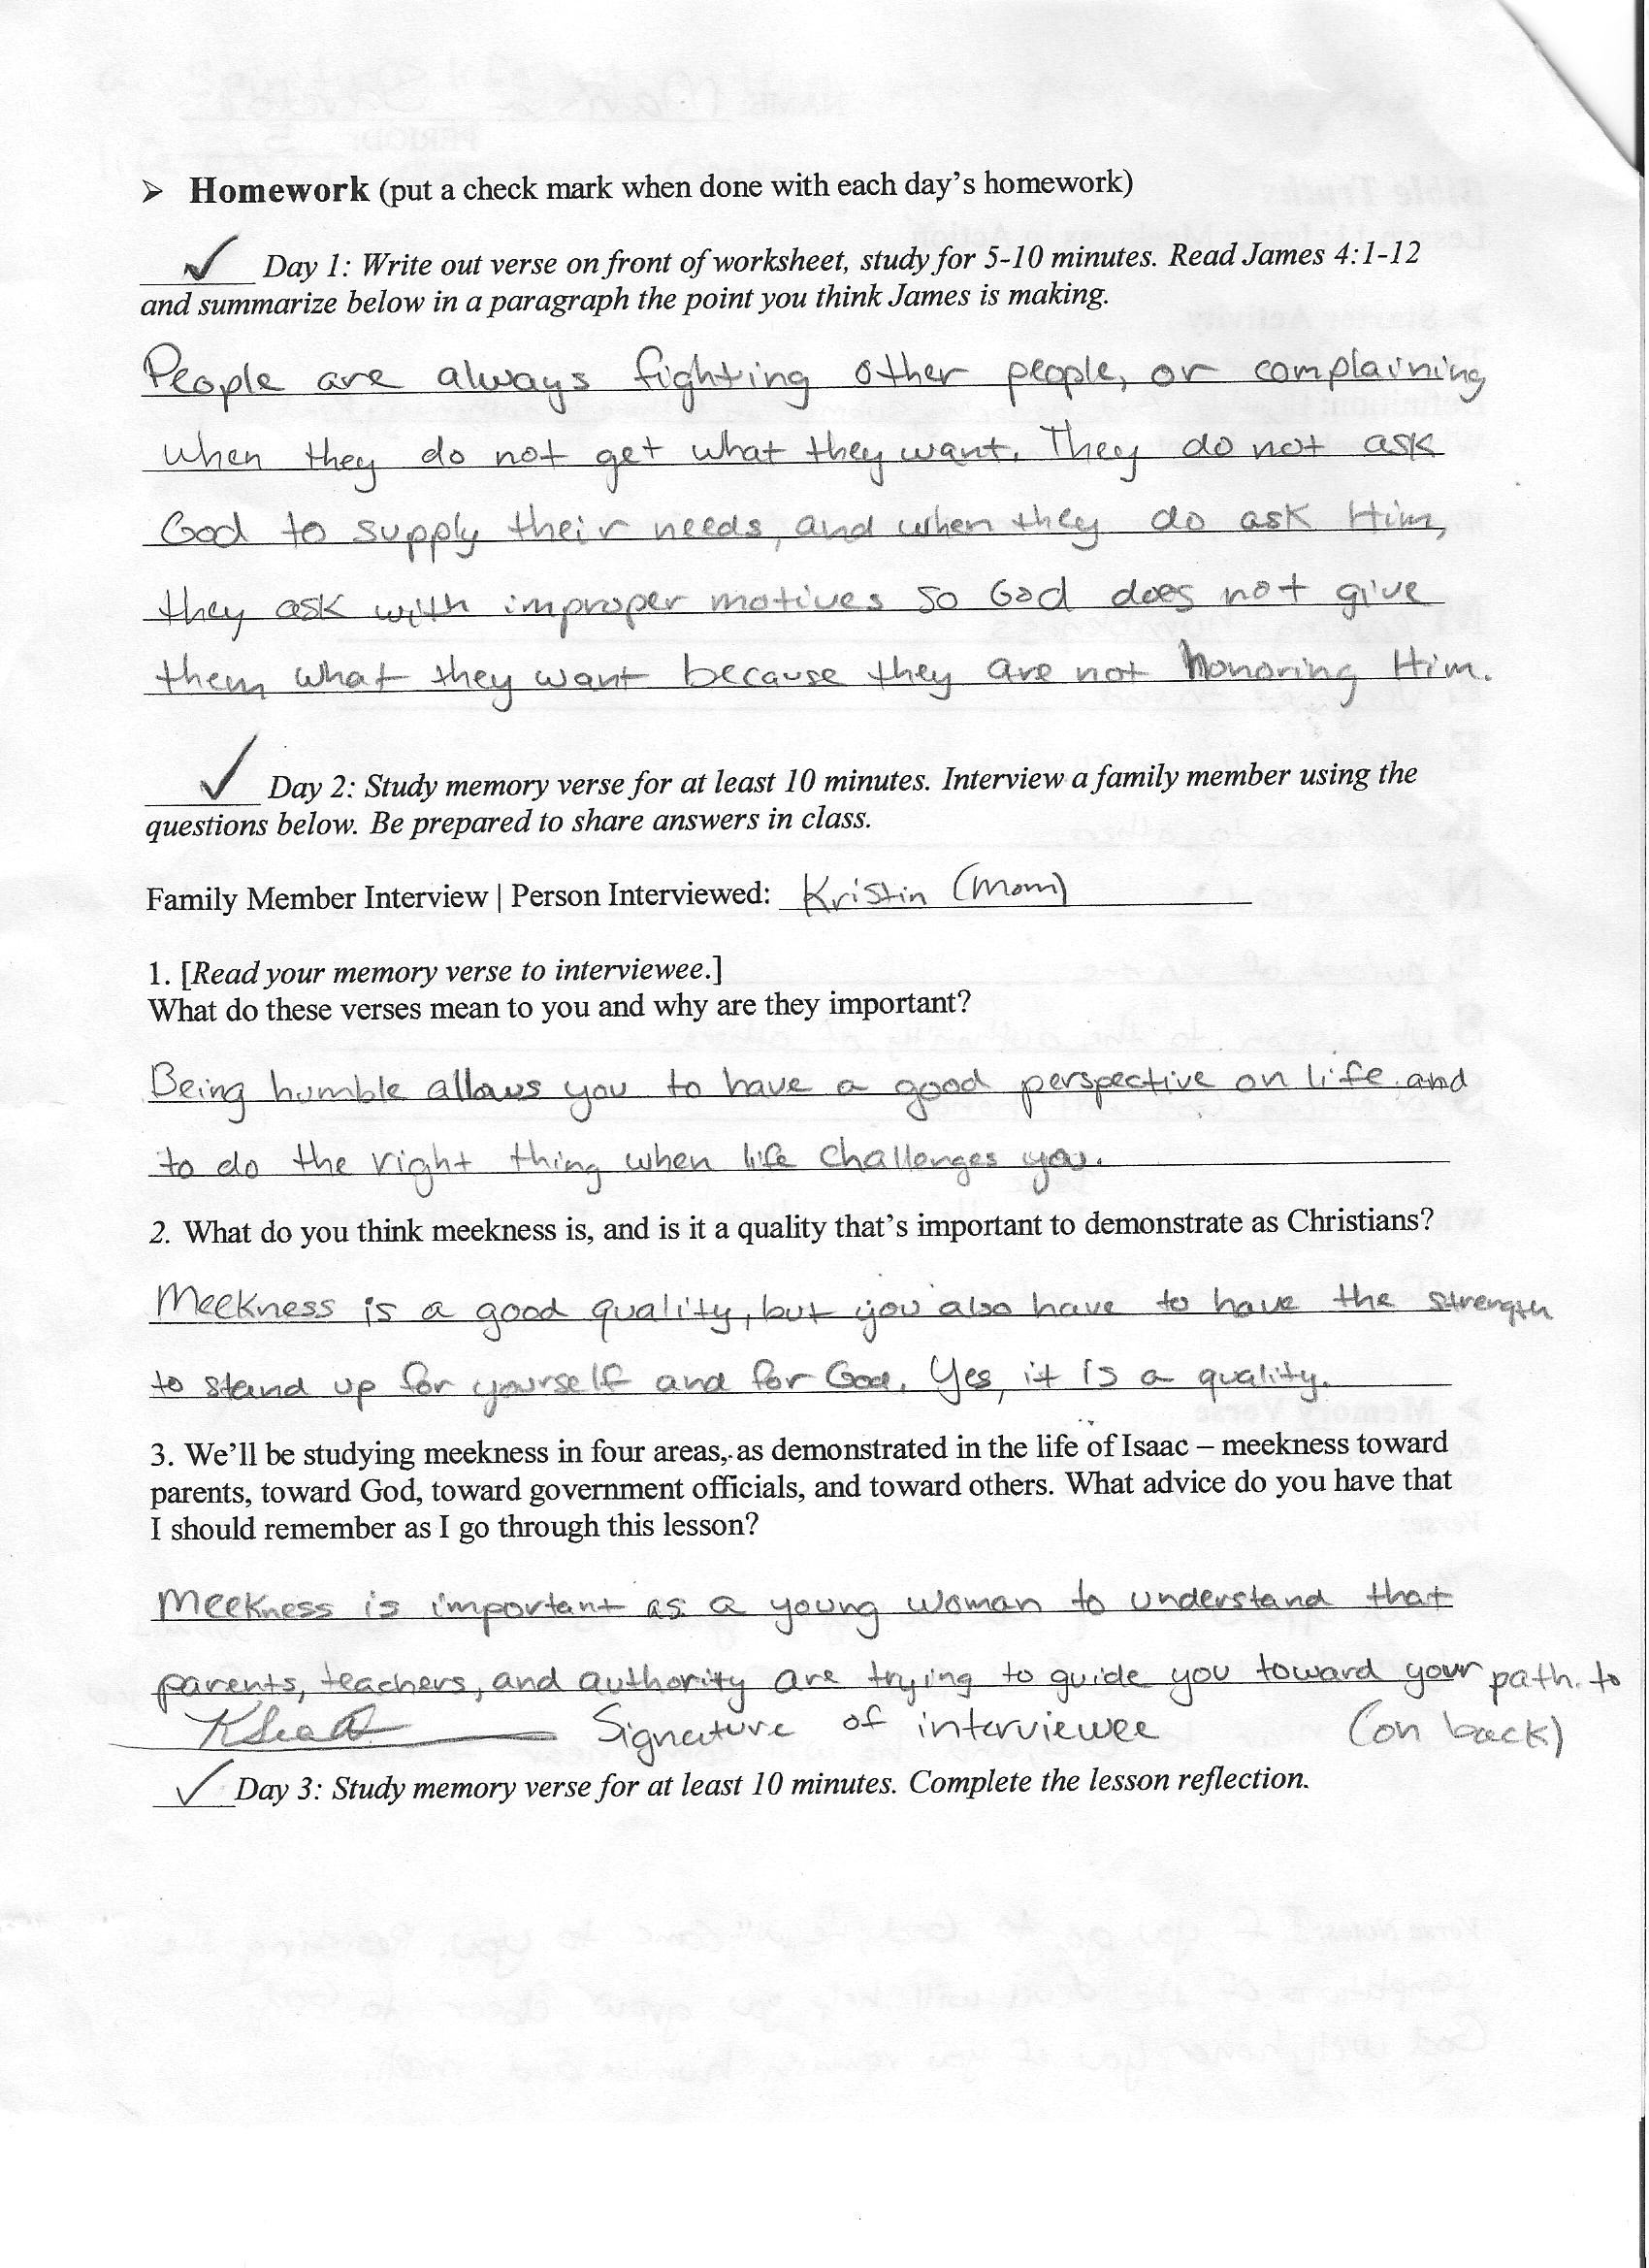 ➢ Homework (put a check mark when done with each day's homework)
✓ Day 1: Write out verse on front of worksheet, study for 5-10 minutes. Read James 4:1-12
and summarize below in a paragraph the point you think James is making.
People are always fighting other people, or complaining
when they do not get what they want. They do not ask
God to supply their needs, and when they do ask Him,
they ask with improper motives so God does not give
them what they want because they are not honoring Him.
✓ Day 2: Study memory verse for at least 10 minutes. Interview a family member using the
questions below. Be prepared to share answers in class.
Family Member Interview | Person Interviewed: Kristin (Mom)
1. [Read your memory verse to interviewee.]
What do these verses mean to you and why are they important?
Being humble allows you to have a good perspective on life and
to do the right thing when life challenges you.
2. What do you think meekness is, and is it a quality that's important to demonstrate as Christians?
Meekness is a good quality, but you also have to have the strength
to stand up for yourself and for God. Yes, it is a quality.
3. We'll be studying meekness in four areas, as demonstrated in the life of Isaac – meekness toward
parents, toward God, toward government officials, and toward others. What advice do you have that
I should remember as I go through this lesson?
Meekness is important as a young woman to understand that
parents, teachers, and authority are trying to guide you toward your path. to
Signature of interviewee (on back)
✓ Day 3: Study memory verse for at least 10 minutes. Complete the lesson reflection.